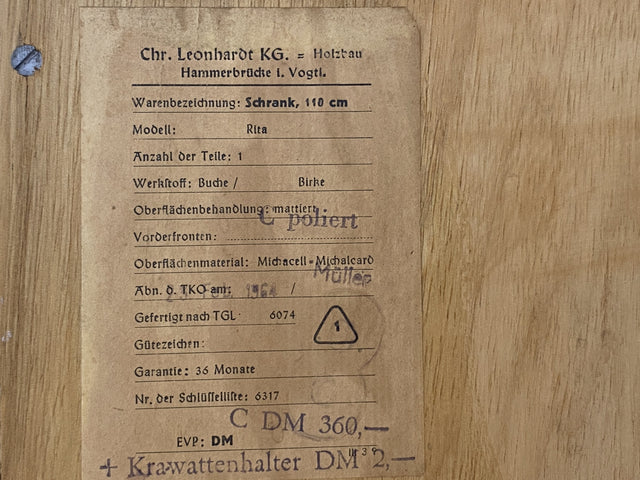 Chr. Leonhardt KG. = Holzbau
Hammerbrücke i. Vogtl.
Warenbezeichnung: Schrank, 110 cm
Modell: Rita
Anzahl der Teile: 1
Werkstoff: Buche / Birke
Oberflächenbehandlung: mattiert
C poliert
Vorderfronten:
Oberflächenmaterial: Michacell-Michalcord
Müller
Abn. d. TKO am: 1964 /
Gefertigt nach TGL 6074
1
Gütezeichen:
Garantie: 36 Monate
Nr. der Schlüsselliste: 6317
C DM 360,—
EVP: DM
+ Krawattenhalter DM 2,—